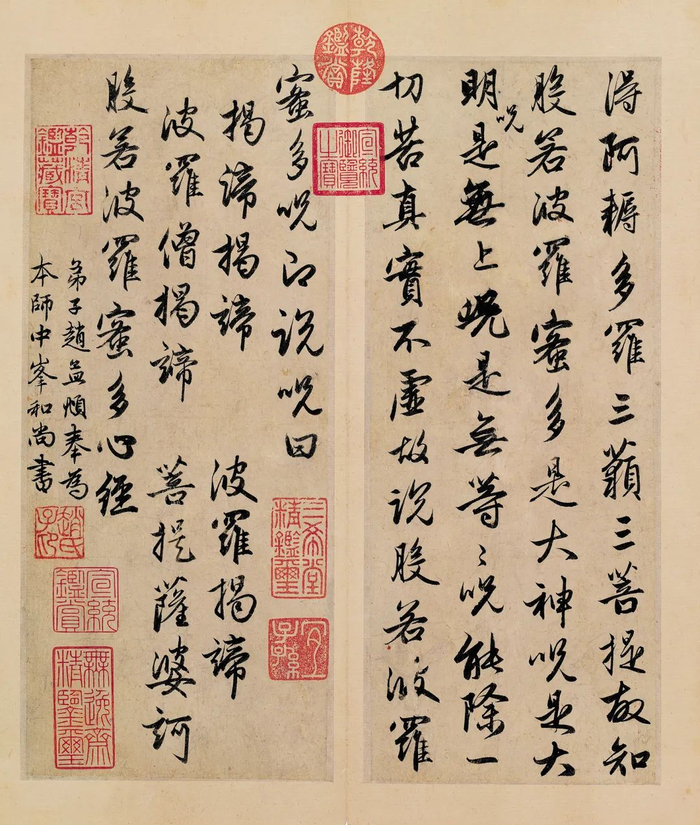 得阿耨多羅三藐三菩提故知
般若波羅蜜多是大神呪是大
明呪是無上呪是無等〻呪能除一
切苦真實不虛故說般若波羅
蜜多呪即說呪曰
揭諦揭諦 波羅揭諦
波羅僧揭諦 菩提薩婆訶
般若波羅蜜多心經
弟子趙孟頫奉為
本師中峯和尚書
乾隆鑑賞
宣統御覽之寶
三希堂精鑑璽
宜子孫
乾清宮鑑藏寶
趙氏子昂
宣統鑑賞
無逸齋精鑒璽